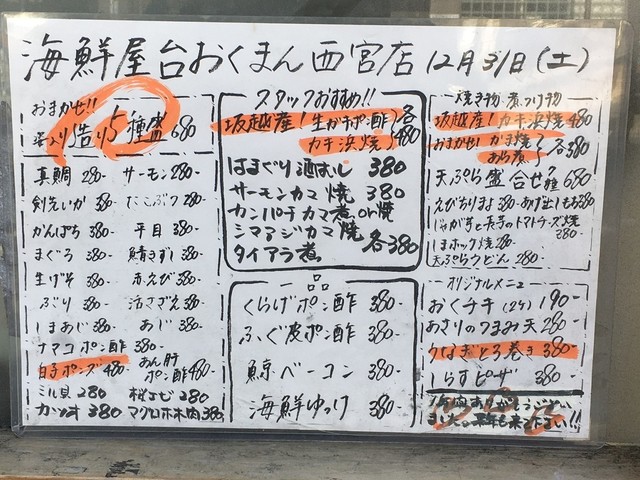 海鮮屋台おくまん西宮店 12月31日(土)
おまかせ!!
造り5種盛 680
真鯛 280- サーモン 280-
剣先いか 380- たこぶつ 280-
かんぱち 380- 平目 380-
まぐろ 380- 鯖きずし 380-
生げそ 380- 赤えび 380-
ぶり 380- 活さざえ 380-
しまあじ 380- あじ 380-
ナマコポン酢 380
白子ポンズ 480- あん肝ポン酢 480-
ミル貝 280 桜えび 280
カツオ 380 マグロホホ肉 380
スタッフおすすめ!!
坂越産!生ガキポン酢 各
カキ浜焼 480
はまぐり酒むし 380
サーモンカマ焼 380
カンパチカマ煮or焼
シマアジカマ焼 各380
タイアラ煮
一品
くらげポン酢 380-
ふぐ皮ポン酢 380-
鯨ベーコン 380-
海鮮ゆっけ 380-
焼き物・煮つけ物
坂越産!カキ浜焼 480
おまかせ!かま焼
あら煮 各380
天ぷら盛合せ7種 680
えびちりまよ 380- あげ出しもち 380
じゃがすと長芋のトマトチーズ焼 280-
しまホッケ焼 280-
天ぷらうどん 280-
オリジナルメニュー
おくチキ(2ケ) 190-
あさりのつまみ天 280-
うなぎとろ巻き 380-
しらすピザ 380-
1年間ありがとうござい
ました。来年も来て下さい!!